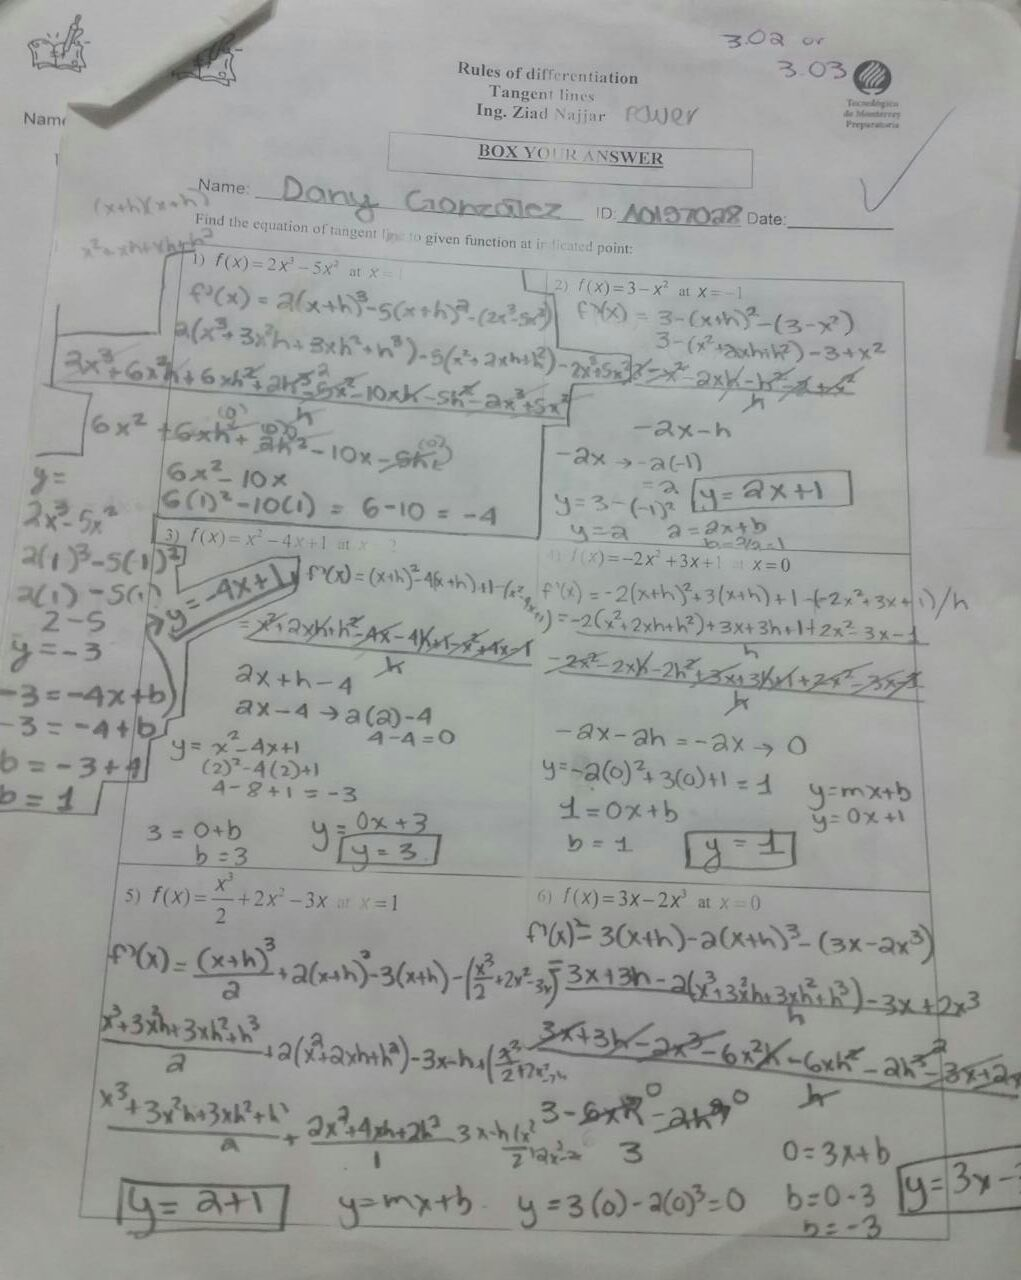 3.02 or
3.03
Rules of differentiation
Tangent lines
Ing. Ziad Najjar Power
Tecnológico
de Monterrey
Preparatoria
BOX YOUR ANSWER
Name: Dany González ID: A0197028 Date:
Find the equation of tangent line to given function at indicated point:
(x+h)(x+h)
x²+xh+xh+h²
1) f(x)=2x³-5x² at x=1
f'(x) = 2(x+h)³-5(x+h)²-(2x³-5x²)
2(x³+3x²h+3xh²+h³)-5(x²+2xh+h²)-2x³+5x²
2x³+6x²h+6xh²+2h³-5x²-10xh-5h²-2x³+5x²
h
6x²+6xh+2h²-10x-5h
6x²-10x
6(1)²-10(1) = 6-10 = -4
y=
2x³-5x²
2(1)³-5(1)²
2(1)-5(1)
2-5
y=-3
-3=-4x+b
-3=-4+b
b=-3+4
b=1
y=-4x+1
2) f(x)=3-x² at x=-1
f'(x) = 3-(x+h)²-(3-x²)
3-(x²+2xh+h²)-3+x²
3-x²-2xh-h²-3+x²
h
-2x-h
-2x→-2(-1)
=2
y=3-(-1)²
y=2
2=2x+b
y=2x+1
3) f(x)=x²-4x+1 at x=2
f'(x)=(x+h)²-4(x+h)+1-(x²-4x+1)
=x²+2xh+h²-4x-4h+1-x²+4x-1
h
2x+h-4
2x-4→2(2)-4
4-4=0
y=x²-4x+1
(2)²-4(2)+1
4-8+1=-3
3=0+b
b=3
y=0x+3
y=3
4) f(x)=-2x²+3x+1 at x=0
f'(x)=-2(x+h)²+3(x+h)+1-(-2x²+3x+1)/h
=-2(x²+2xh+h²)+3x+3h+1+2x²-3x-1
h
-2x²-2xh-2h²+3x+3h+1+2x²-3x-1
h
-2x-2h=-2x→0
y=-2(0)²+3(0)+1=1
1=0x+b
b=1
y=mx+b
y=0x+1
y=1
5) f(x)=x³/2+2x²-3x at x=1
f'(x)=(x+h)³/2+2(x+h)²-3(x+h)-(x³/2+2x²-3x)
x³+3x²h+3xh²+h³/2+2(x²+2xh+h²)-3x-h+
x³+3x²h+3xh²+h³/2+2x²+4xh+2h²/1
y=2+1
y=mx+b
6) f(x)=3x-2x³ at x=0
f'(x)=3(x+h)-2(x+h)³-(3x-2x³)
3x+3h-2(x³+3x²h+3xh²+h³)-3x+2x³
h
3x+3h-2x³-6x²h-6xh²-2h³-3x+2x
h
3-6xh-2h²
3
y=3(0)-2(0)³=0
0=3x+b
b=0-3
b=-3
y=3x-